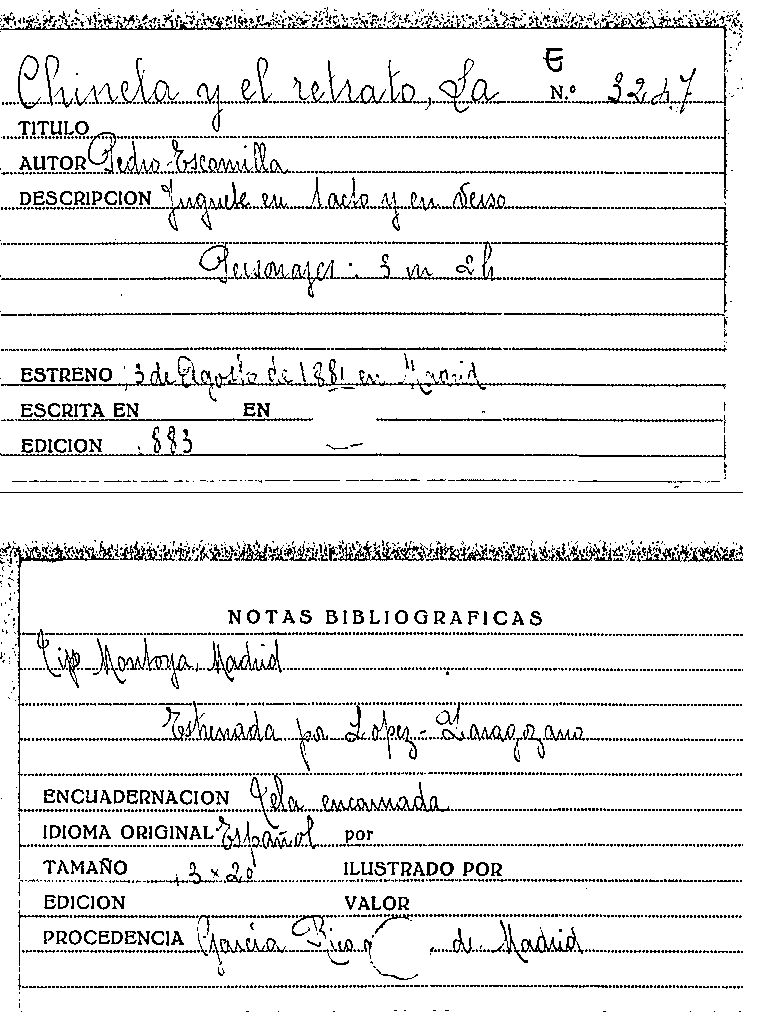 E
Chinela y el retrato, La N.º 3247
TITULO
AUTOR Pedro Escamilla
DESCRIPCION Juguete en 1 acto y en verso
Personajes: 3 m 2 h
ESTRENO 3 de Agosto de 1881 en Madrid
ESCRITA EN EN
EDICION 1883
NOTAS BIBLIOGRAFICAS
Tip Montoya, Madrid
Estrenada por Lopez - Zaragozano
ENCUADERNACION Tela encarnada
IDIOMA ORIGINAL Español por
TAMAÑO 13 x 20 ILUSTRADO POR
EDICION VALOR
PROCEDENCIA García Rico de Madrid